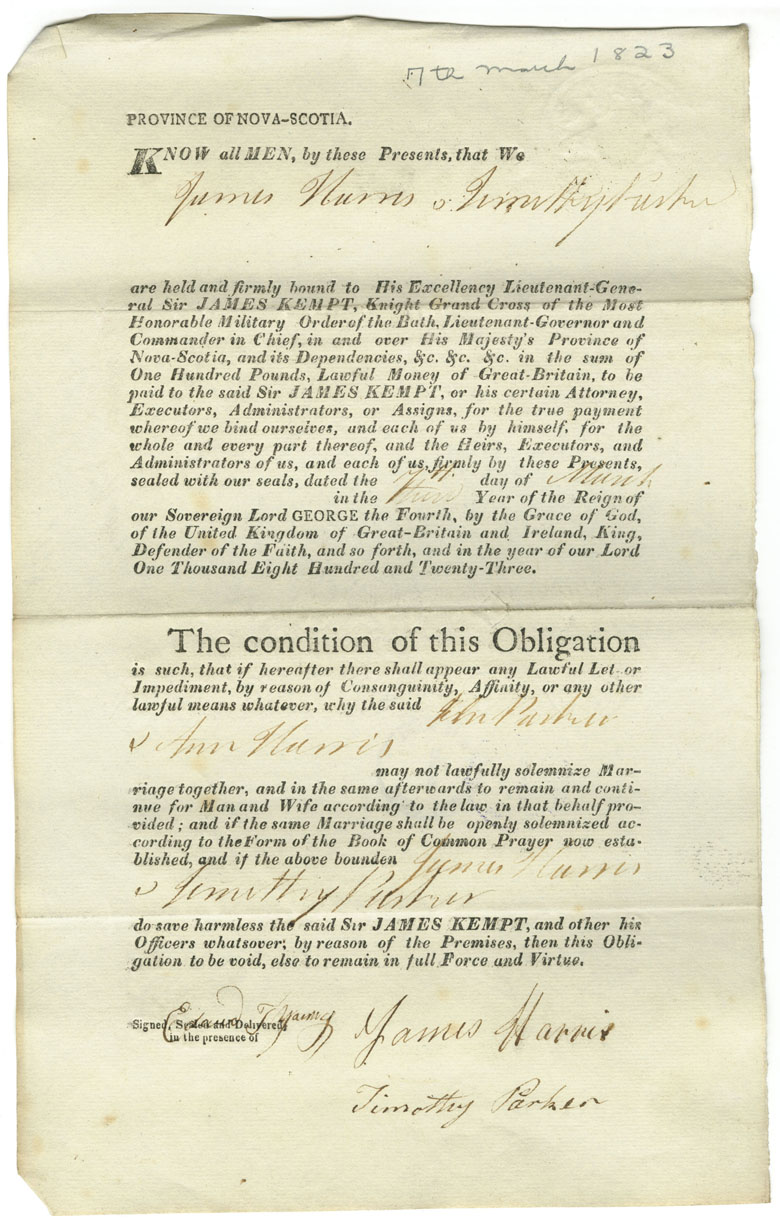 7th March 1823
PROVINCE OF NOVA-SCOTIA.
KNOW all MEN, by these Presents, that We
James Harris & Timothy Parker
are held and firmly bound to His Excellency Lieutenant-Gene-
ral Sir JAMES KEMPT, Knight Grand Cross of the Most
Honorable Military Order of the Bath, Lieutenant-Governor and
Commander in Chief, in and over His Majesty's Province of
Nova-Scotia, and its Dependencies, &c. &c. &c. in the sum of
One Hundred Pounds, Lawful Money of Great-Britain, to be
paid to the said Sir JAMES KEMPT, or his certain Attorney,
Executors, Administrators, or Assigns, for the true payment
whereof we bind ourselves, and each of us by himself, for the
whole and every part thereof, and the Heirs, Executors, and
Administrators of us, and each of us, firmly by these Presents,
sealed with our seals, dated the 7th day of March
in the Third Year of the Reign of
our Sovereign Lord GEORGE the Fourth, by the Grace of God,
of the United Kingdom of Great-Britain and Ireland, King,
Defender of the Faith, and so forth, and in the year of our Lord
One Thousand Eight Hundred and Twenty-Three.
The condition of this Obligation
is such, that if hereafter there shall appear any Lawful Let or
Impediment, by reason of Consanguinity, Affinity, or any other
lawful means whatever, why the said John Parker
& Ann Harris
may not lawfully solemnize Mar-
riage together, and in the same afterwards to remain and conti-
nue for Man and Wife according to the law in that behalf pro-
vided; and if the same Marriage shall be openly solemnized ac-
cording to the Form of the Book of Common Prayer now esta-
blished, and if the above bounden James Harris
& Timothy Parker
do save harmless the said Sir JAMES KEMPT, and other his
Officers whatsover, by reason of the Premises, then this Obli-
gation to be void, else to remain in full Force and Virtue.
Signed, Sealed and Delivered,
in the presence of
James Harris
Timothy Parker